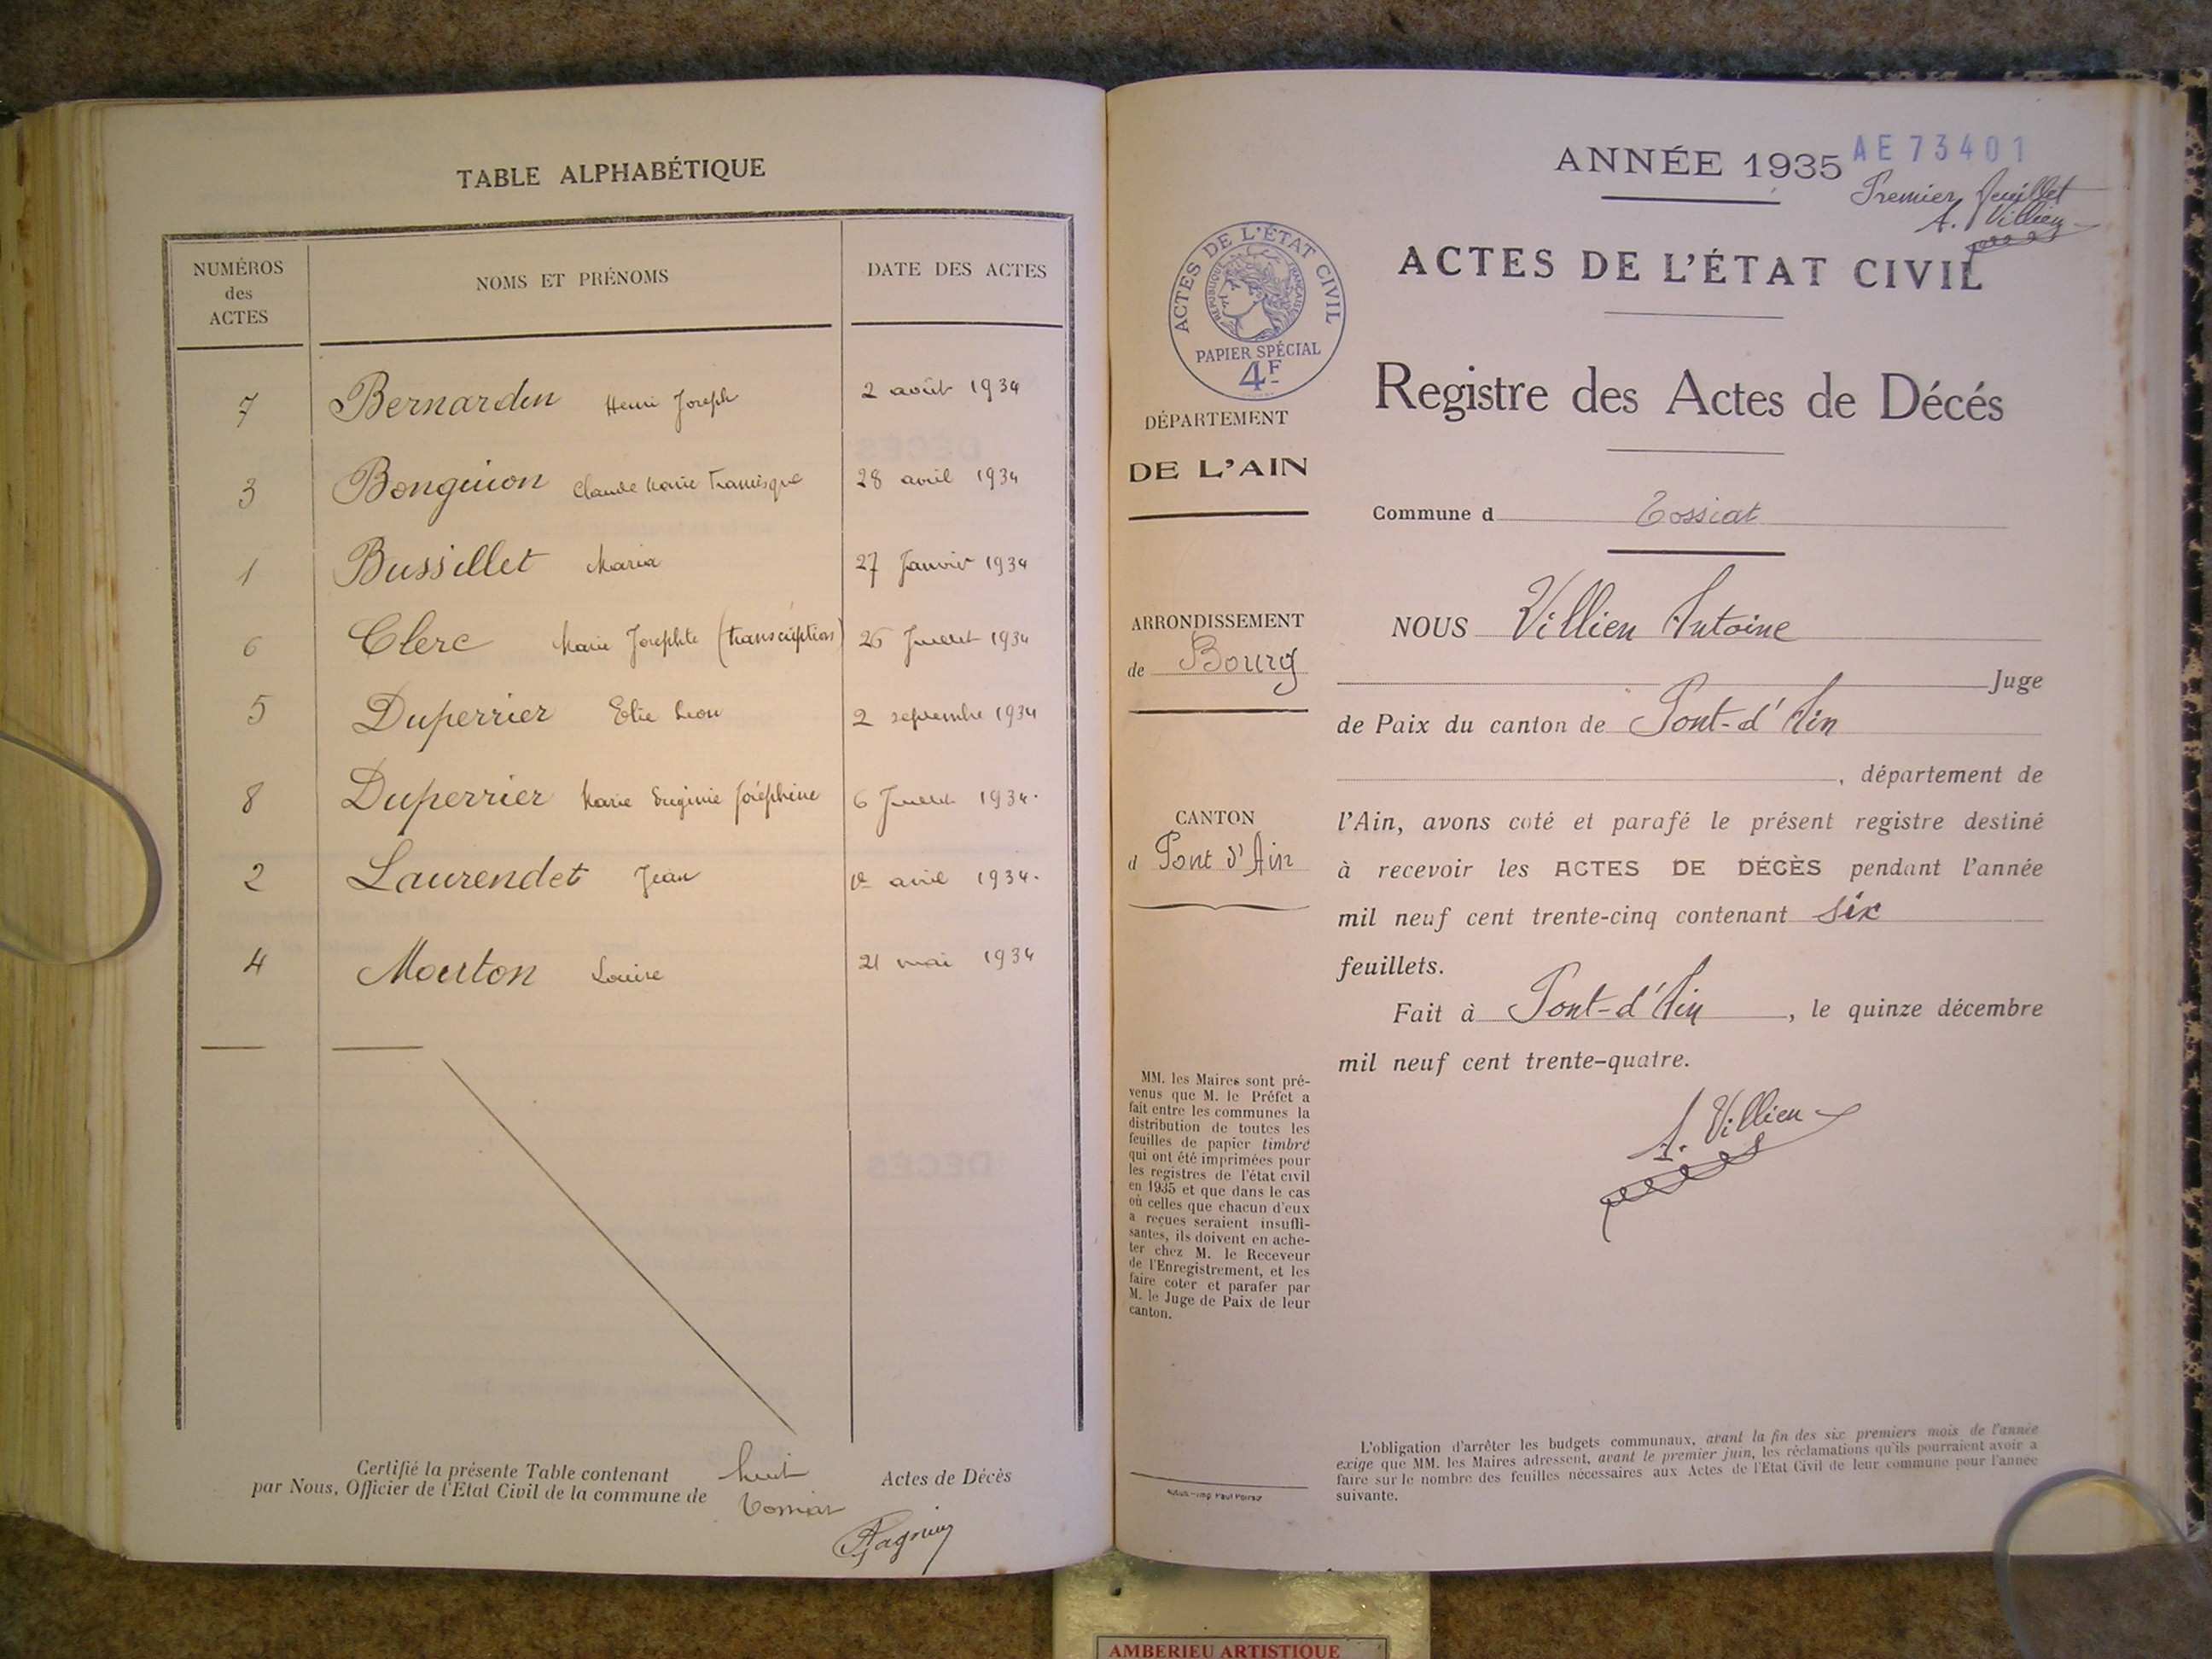 TABLE ALPHABÉTIQUE
NUMÉROS des ACTES
NOMS ET PRÉNOMS
DATE DES ACTES
7 Bernardin Henri Joseph 2 août 1934
3 Bonguion Claude Marie Françisque 28 avril 1934
1 Bussillet Maria 27 Janvier 1934
6 Clerc Marie Josephte (transcription) 26 Juillet 1934
5 Duperrier Elie Léon 2 septembre 1934
8 Duperrier Marie Eugénie Joséphine 6 Juillet 1934.
2 Laurendet Jean 1er avril 1934.
4 Mouton Louise 21 mai 1934
Certifié la présente Table contenant huit Actes de Décès
par Nous, Officier de l'Etat Civil de la commune de Tossiat
ANNÉE 1935
AE 73401
Premier feuillet
A. Villien
ACTES DE L'ÉTAT CIVIL
ACTES DE L'ÉTAT CIVIL
RÉPUBLIQUE FRANÇAISE
PAPIER SPÉCIAL
4F
Registre des Actes de Décés
DÉPARTEMENT
DE L'AIN
Commune d Tossiat
ARRONDISSEMENT
de Bourg
CANTON
d Pont d'Ain
NOUS Villien Antoine
Juge
de Paix du canton de Pont-d'Ain
, département de
l'Ain, avons coté et parafé le présent registre destiné
à recevoir les ACTES DE DÉCÈS pendant l'année
mil neuf cent trente-cinq contenant six
feuillets.
Fait à Pont-d'Ain, le quinze décembre
mil neuf cent trente-quatre.
A. Villien
MM. les Maires sont pré-
venus que M. le Préfet a
fait entre les communes la
distribution de toutes les
feuilles de papier timbré
qui ont été imprimées pour
les registres de l'état civil
en 1935 et que dans le cas
où celles que chacun d'eux
a reçues seraient insuffi-
santes, ils doivent en ache-
ter chez M. le Receveur
de l'Enregistrement, et les
faire coter et parafer par
M. le Juge de Paix de leur
canton.
L'obligation d'arrêter les budgets communaux, avant la fin des six premiers mois de l'année
exige que MM. les Maires adressent, avant le premier juin, les réclamations qu'ils pourraient avoir a
faire sur le nombre des feuilles nécessaires aux Actes de l'Etat Civil de leur commune pour l'année
suivante.
AMBERIEU ARTISTIQUE